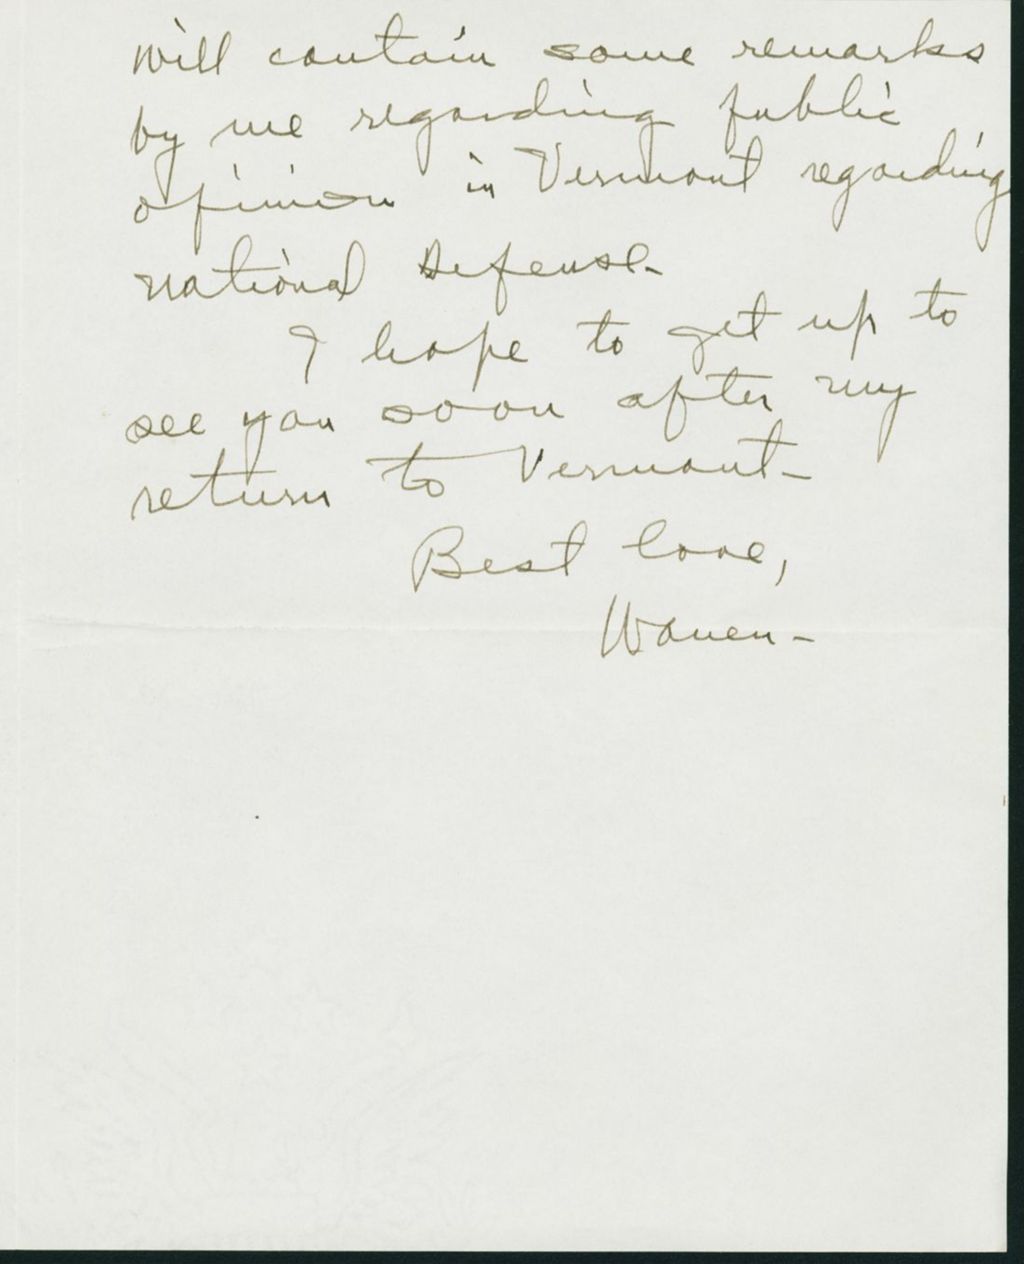 will contain some remarks
by me regarding public
opinion in Vermont regarding
national defense-
I hope to get up to
see you soon after my
return to Vermont-
Best love,
Warren-